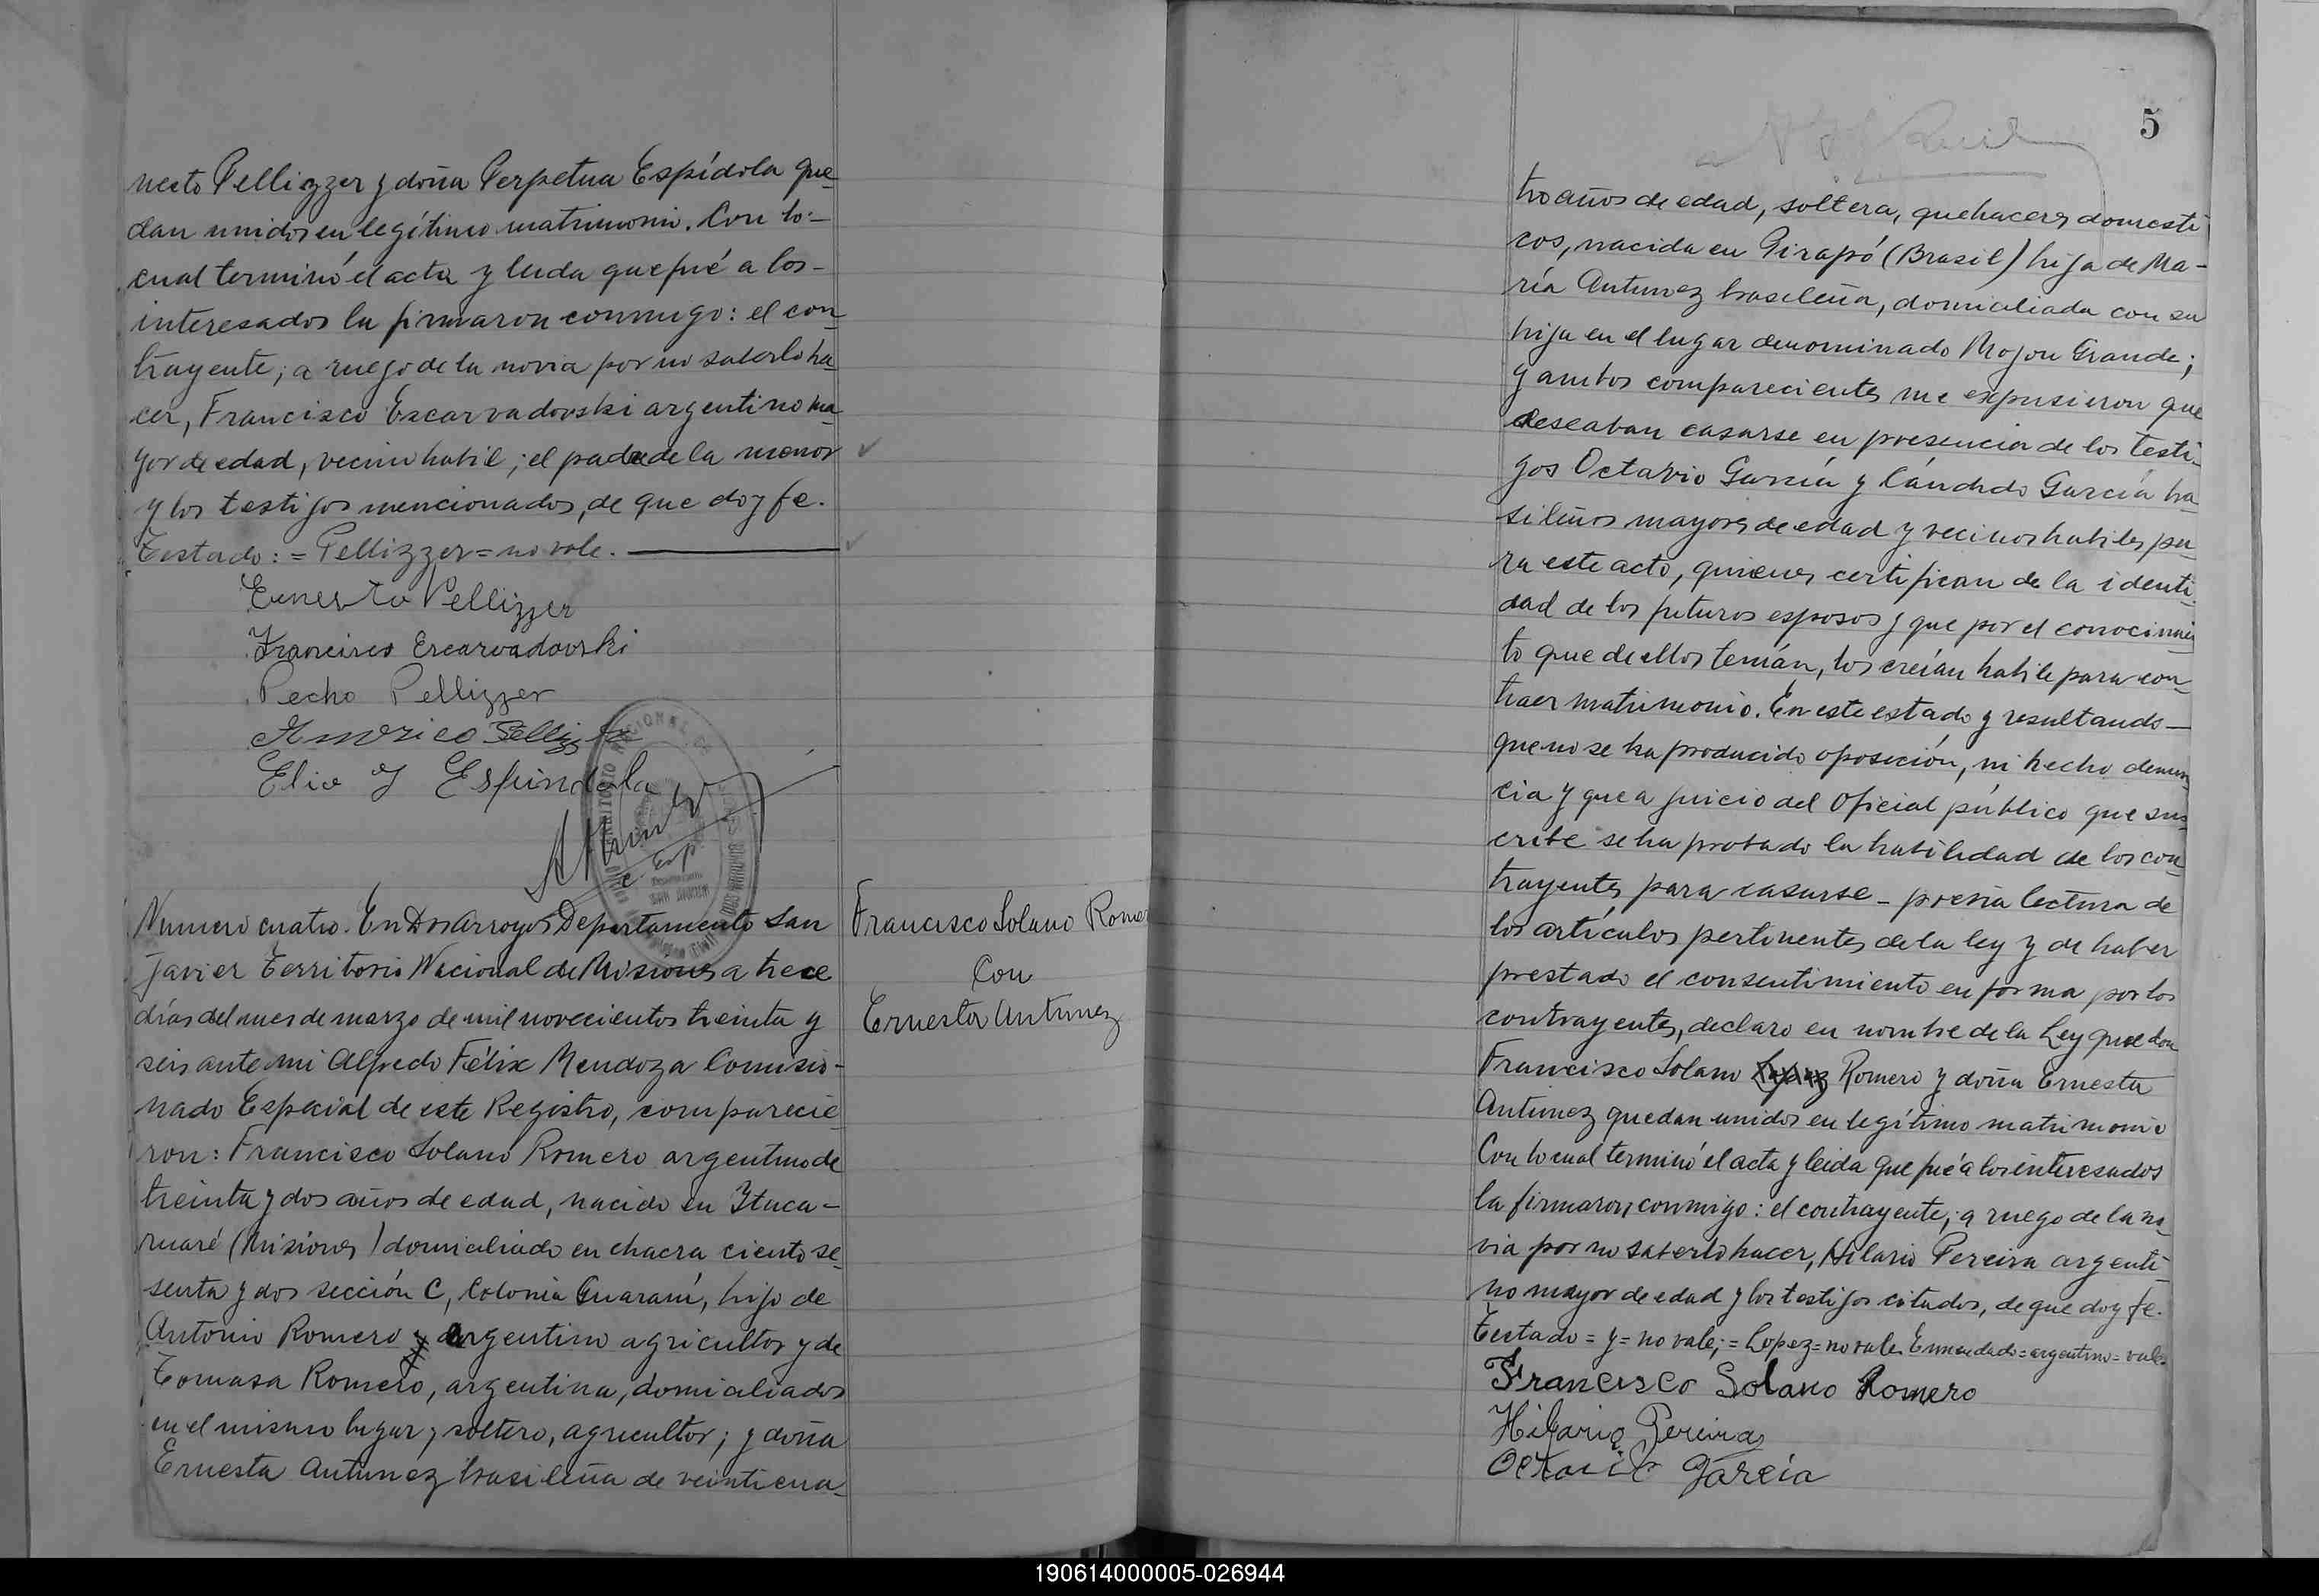 nesto Pellizzer y doña Perpetua Espídola que-
dan unidos en legítimo matrimonio. Con lo-
cual terminó el acta y leida que fué a los-
interesados la firmaron conmigo: el con-
trayente; a ruego de la novia por no saberlo ha-
cer, Francisco Escarvadovski argentino ma-
yor de edad, vecino habil; el padre de la menor
y los testigos mencionados, de que doy fe.
Testado: = Pellizzer = no vale.
Ernesto Pellizzer
Francisco Escarvadovski
Pecho Pellizzer
Americo Pellizzer
Elio J Espindola
Numero cuatro. En Dos Arroyos Departamento San
Javier Territorio Nacional de Misiones a trece
días del mes de marzo de mil novecientos treinta y
seis ante mi Alfredo Félix Mendoza Comisio-
nado Especial de este Registro, comparecie-
ron: Francisco Solano Romero argentino de
treinta y dos años de edad, nacido en Itaca-
ruaré (Misiones) domiciliado en chacra ciento se-
senta y dos sección C, Colonia Guaraní, hijo de
Antonio Romero y argentino agricultor y de
Tomasa Romero, argentina, domiciliados
en el mismo lugar, soltero, agricultor; y doña
Ernesta Antunez brasileña de veinticua-
Francisco Solano Romero
Con
Ernesta Antunez
5
tro años de edad, soltera, quehaceres domesti
cos, nacida en Pirapó (Brasil) hija de Ma-
ría Antunez brasileña, domiciliada con su
hija en el lugar denominado Mojon Grande;
y ambos comparecientes me expusieron que
deseaban casarse en presencia de los testi-
gos Octavio García y Cándido García bra-
sileños mayores de edad y vecinos habiles pa-
ra este acto, quienes certifican de la identi-
dad de los futuros esposos y que por el conocimien
to que de ellos tenían, los creían habile para con-
traer matrimonio. En este estado y resultando-
que no se ha producido oposición, ni hecho denun
cia y que a juicio del Oficial público que sus-
cribe se ha probado la habilidad de los con-
trayentes para casarse - previa lectura de
los artículos pertinentes de la ley y de haber
prestado el consentimiento en forma por los
contrayentes, declaro en nombre de la Ley que don
Francisco Solano Lopez Romero y doña Ernesta
Antunez quedan unidos en legítimo matrimonio
Con lo cual terminó el acta y leida que fué a los interesados
la firmaron conmigo: el contrayente; a ruego de la no-
via por no saberlo hacer, Hilario Pereira argenti-
no mayor de edad y los testigos citados, de que doy fe.
Testado = y = no vale; = Lopez = no vale. Enmendado = argentino = vale
Francisco Solano Romero
Hilario Pereira
Octavio García
190614000005-026944